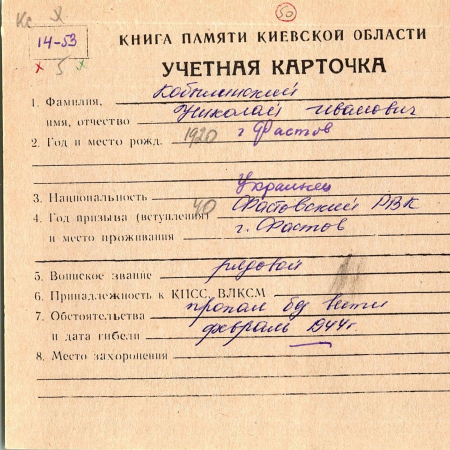 Кс
50
14-53
х 5 х
КНИГА ПАМЯТИ КИЕВСКОЙ ОБЛАСТИ
УЧЕТНАЯ КАРТОЧКА
1. Фамилия,
имя, отчество Николай Иванович
2. Год и место рожд. 1920 г Фастов
3. Национальность Украинец
4. Год призыва (вступления) 40 Фастовский РВК
и место проживания г. Фастов
5. Воинское звание рядовой
6. Принадлежность к КПСС, ВЛКСМ
7. Обстоятельства пропал без вести
и дата гибели февраль 1944г.
8. Место захоронения